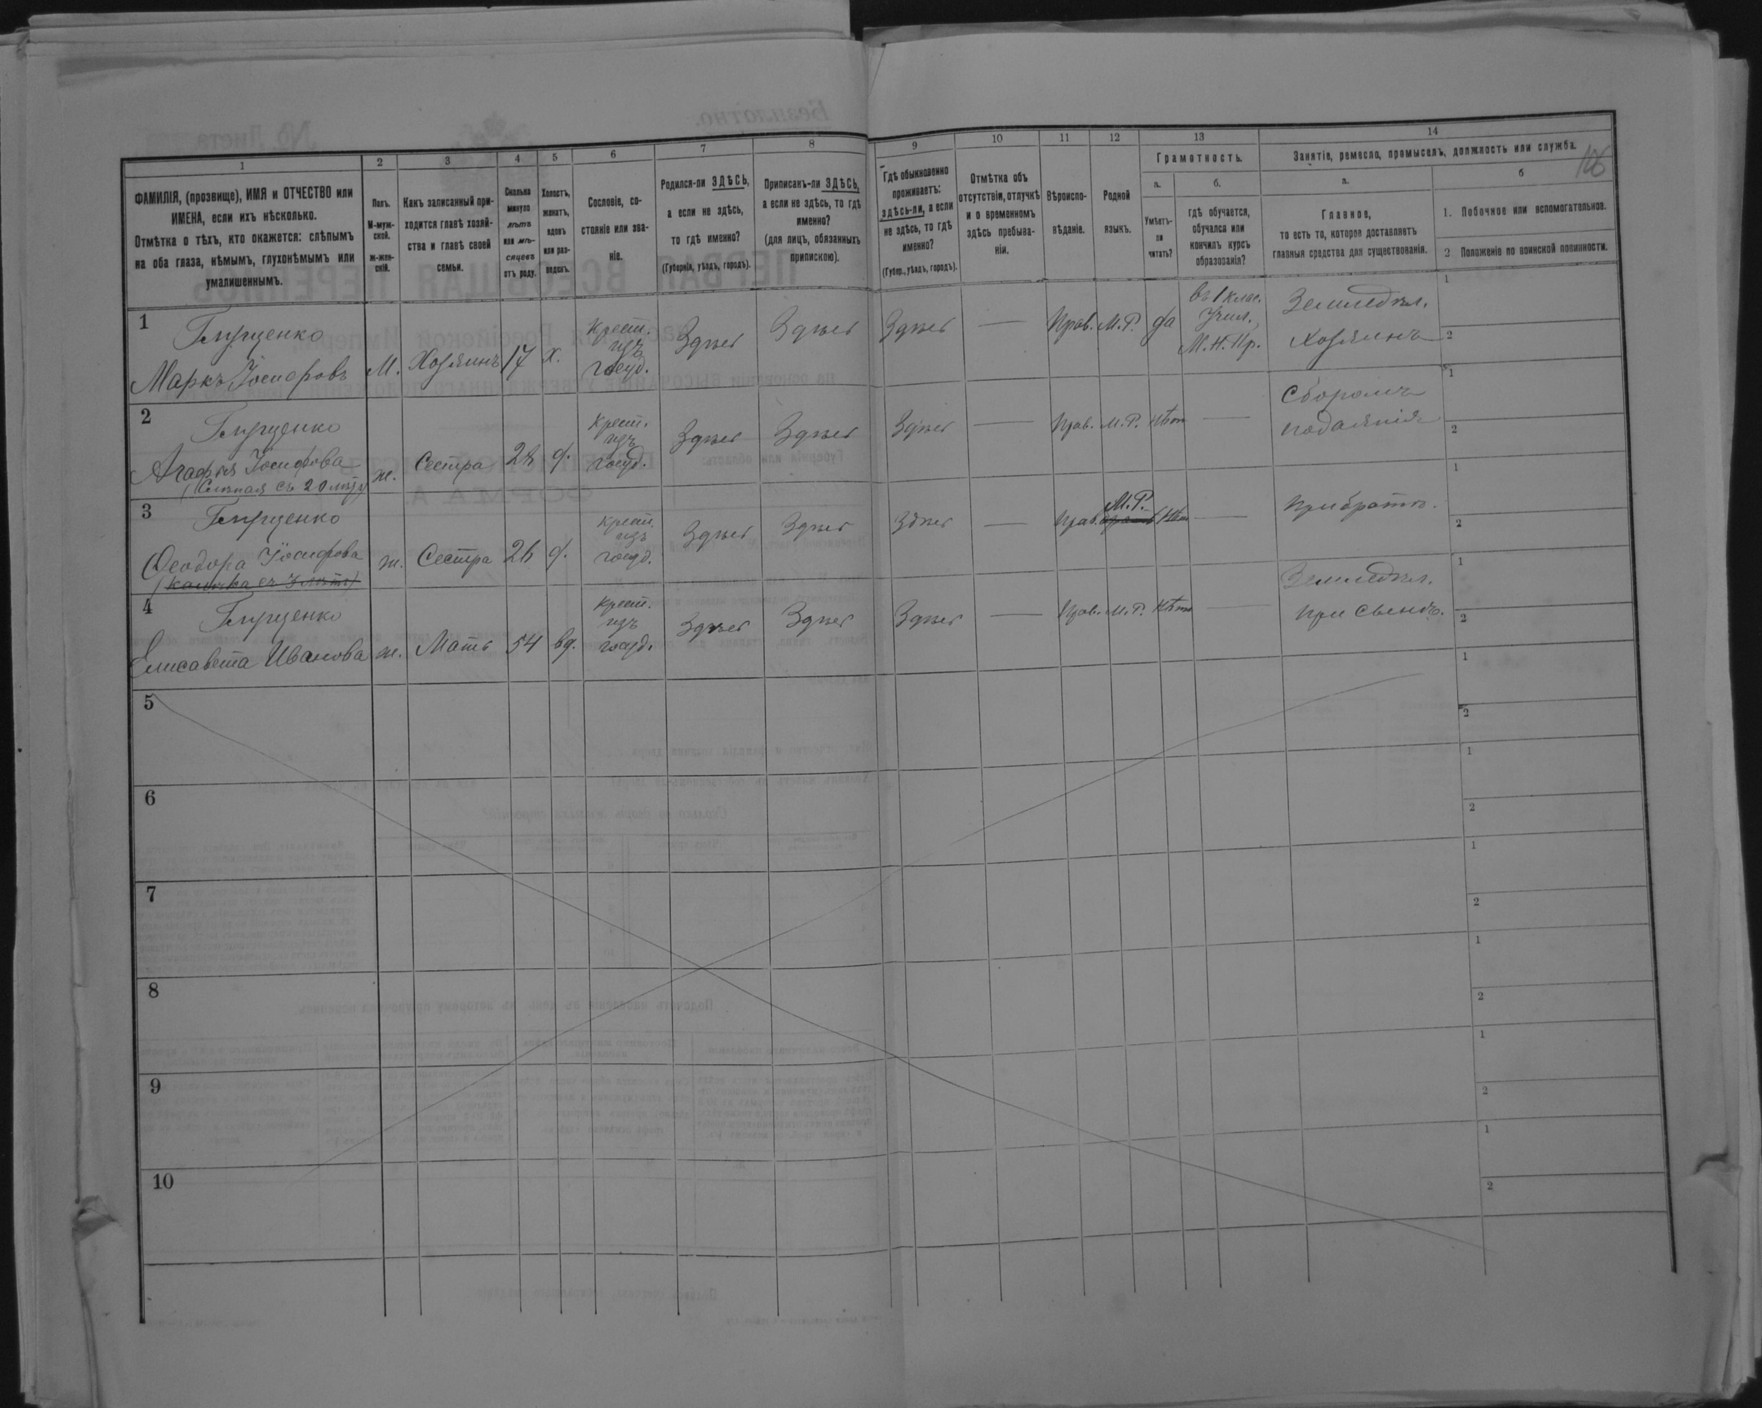 106
1 2 3 4 5 6 7 8 9 10 11 12 13 14
ФАМИЛІЯ, (прозвище), ИМЯ и ОТЧЕСТВО или
ИМЕНА, если ихъ нѣсколько.
Отмѣтка о тѣхъ, кто окажется: слѣпымъ
на оба глаза, нѣмымъ, глухонѣмымъ или
умалишеннымъ.
Полъ.
М-муж-
ской.
ж-жен-
скій.
Какъ записанный при-
ходится главѣ хозяй-
ства и главѣ своей
семьи.
Сколько
минуло
лѣтъ
или мѣ-
сяцевъ
отъ роду.
Холостъ,
женатъ,
вдовъ
или раз-
веденъ.
Сословіе, со-
стояніе или зва-
ніе.
Родился-ли ЗДѢСЬ,
а если не здѣсь,
то гдѣ именно?
(Губернія, уѣздъ, городъ).
Приписанъ-ли ЗДѢСЬ,
а если не здѣсь, то гдѣ
именно?
(для лицъ, обязанныхъ
припискою).
Гдѣ обыкновенно
проживаетъ:
здѣсь-ли, а если
не здѣсь, то гдѣ
именно?
(Губер., уѣздъ, городъ).
Отмѣтка объ
отсутствіи, отлучкѣ
и о временномъ
здѣсь пребыва-
ніи.
Вѣроиспо-
вѣданіе.
Родной
языкъ.
Грамотность.
а.
Умѣетъ-
ли
читать?
б.
гдѣ обучается,
обучался или
кончилъ курсъ
образованія?
Занятіе, ремесло, промыселъ, должность или служба.
а.
Главное,
то есть то, которое доставляетъ
главныя средства для существованія.
б
1. Побочное или вспомогательное.
2 Положеніе по воинской повинности.
1
Маркъ Іосифовъ
М. Хозяинъ 17 х.
Крест.
изъ
госуд.
Здѣсь Здѣсь Здѣсь — Прав. М.Р. да
въ 1 клас.
Учил.
М.Н.Пр.
Земледѣл.
Хозяинъ
1
2
2
Агафья Іосифова
(Слѣпая съ 20 лѣтъ)
ж. Сестра д.
Крест.
изъ
госуд.
Здѣсь Здѣсь Здѣсь — Прав. М.Р. Нѣтъ —
Сборомъ
подаянія
1
2
3
Ѳеодора Іосифова
ж. Сестра д.
Крест.
изъ
госуд.
Здѣсь Здѣсь Здѣсь — Прав. М.Р. Нѣтъ —
При братѣ.
1
2
4
Елисавета Иванова
ж. Мать 54 вд.
Крест.
изъ
госуд.
Здѣсь Здѣсь Здѣсь — Прав. М.Р. Нѣтъ —
Земледѣл.
при сынѣ.
1
2
5
1
2
6
1
2
7
1
2
8
1
2
9
1
2
10
1
2